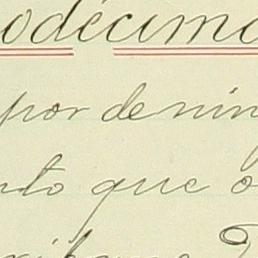 odécimo
por denin
nto que o